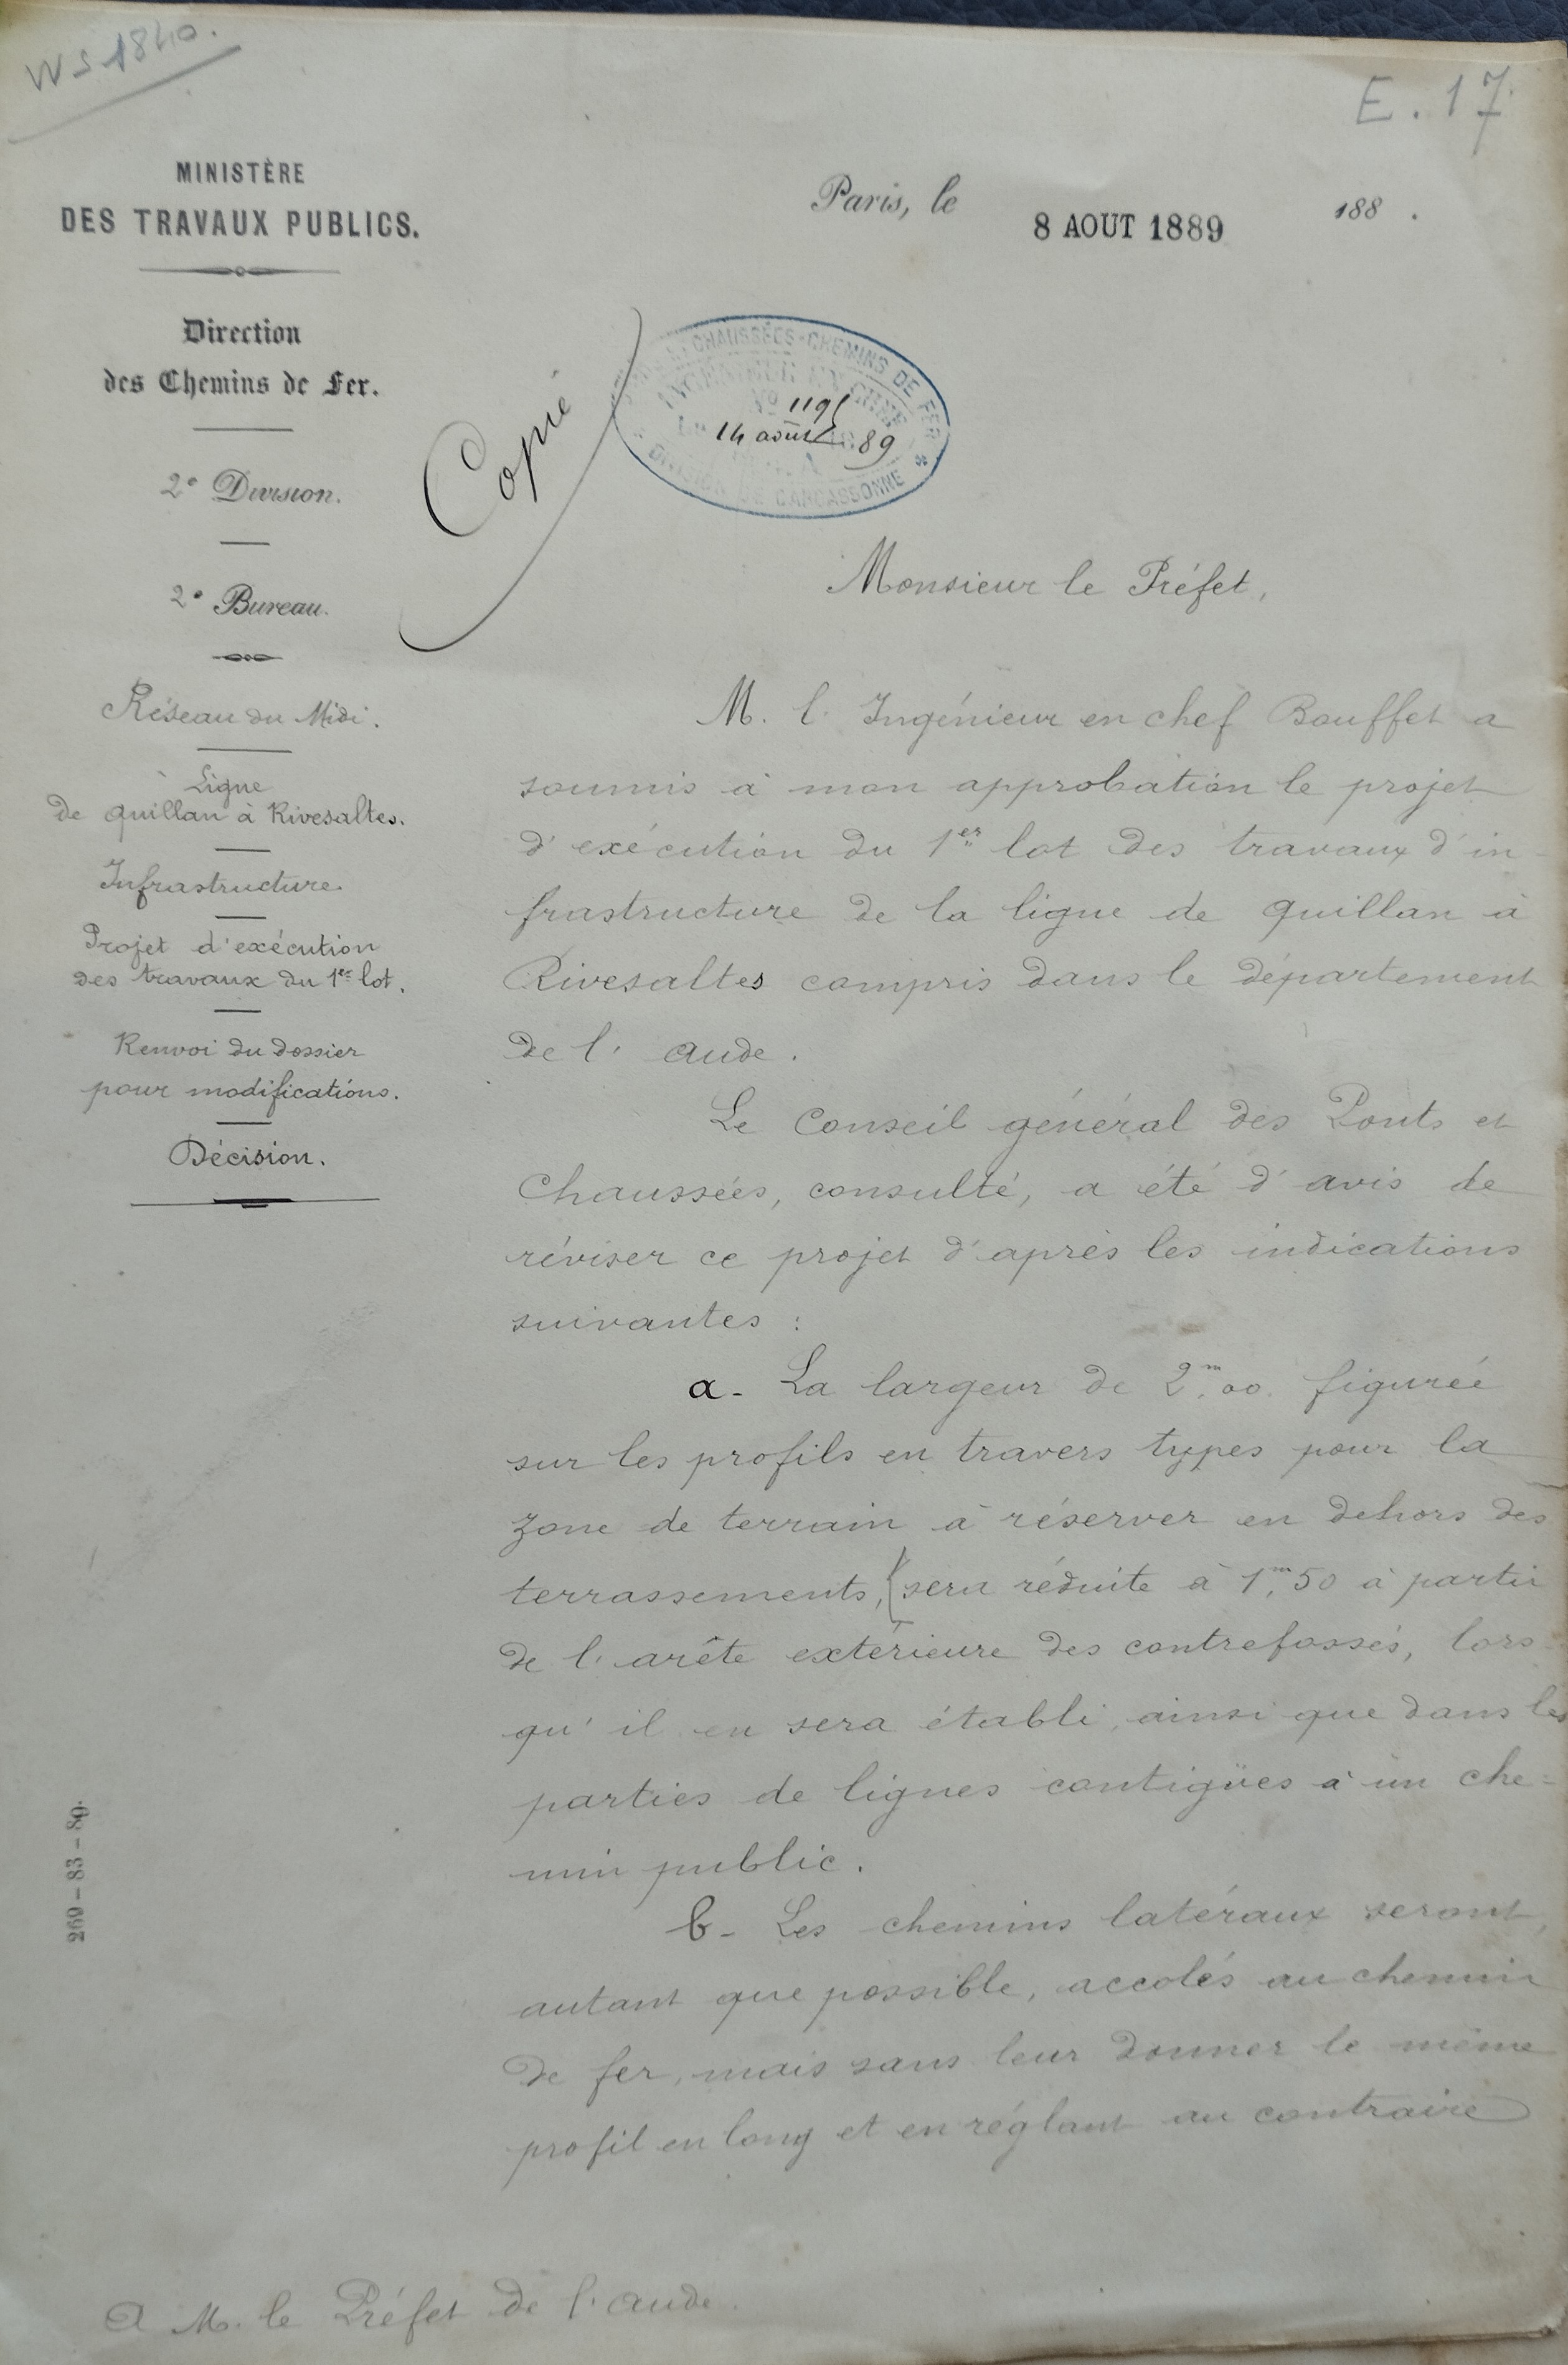 WS 1840.
E. 17
MINISTÈRE
DES TRAVAUX PUBLICS.
Direction
des Chemins de Fer.
2e Division.
2e Bureau.
Réseau du Midi.
Ligne
de Quillan à Rivesaltes.
Infrastructure.
Projet d'exécution
des travaux du 1er lot.
Renvoi du dossier
pour modifications.
Décision.
269-83-89.
Paris, le 8 AOUT 1889 188 .
Copié
CHAUSSÉES-CHEMINS DE FER
No 1195
14 août 89
DIVISION DE CARCASSONNE
Monsieur le Préfet,
M. l'Ingénieur en chef Bouffet a
soumis à mon approbation le projet
d'exécution du 1er lot des travaux d'in-
frastructure de la ligne de Quillan à
Rivesaltes compris dans le département
de l'Aude.
Le Conseil général des Ponts et
Chaussées, consulté, a été d'avis de
réviser ce projet d'après les indications
suivantes :
a- La largeur de 2m,00 figurée
sur les profils en travers types pour la
zone de terrain à réserver en dehors des
terrassements, sera réduite à 1m,50 à partir
de l'arête extérieure des contrefossés, lors-
qu'il en sera établi, ainsi que dans les
parties de lignes contigües à un che-
min public.
b- Les chemins latéraux seront,
autant que possible, accolés au chemin
de fer, mais sans leur donner le même
profil en long et en réglant au contraire
A M. le Préfet de l'Aude.